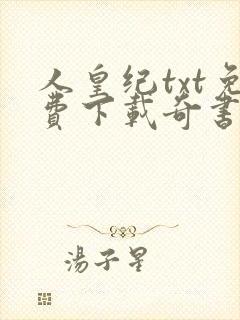 人皇纪txt免
費下載奇書
湯子星